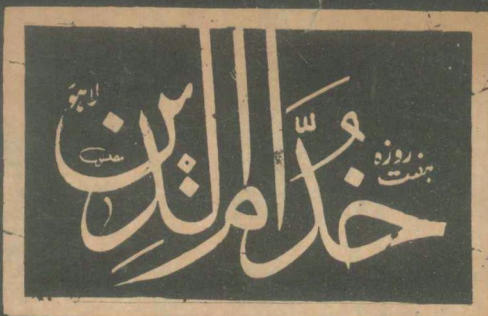 ہفت روزہ
خدّامُ الدّین
لاہور